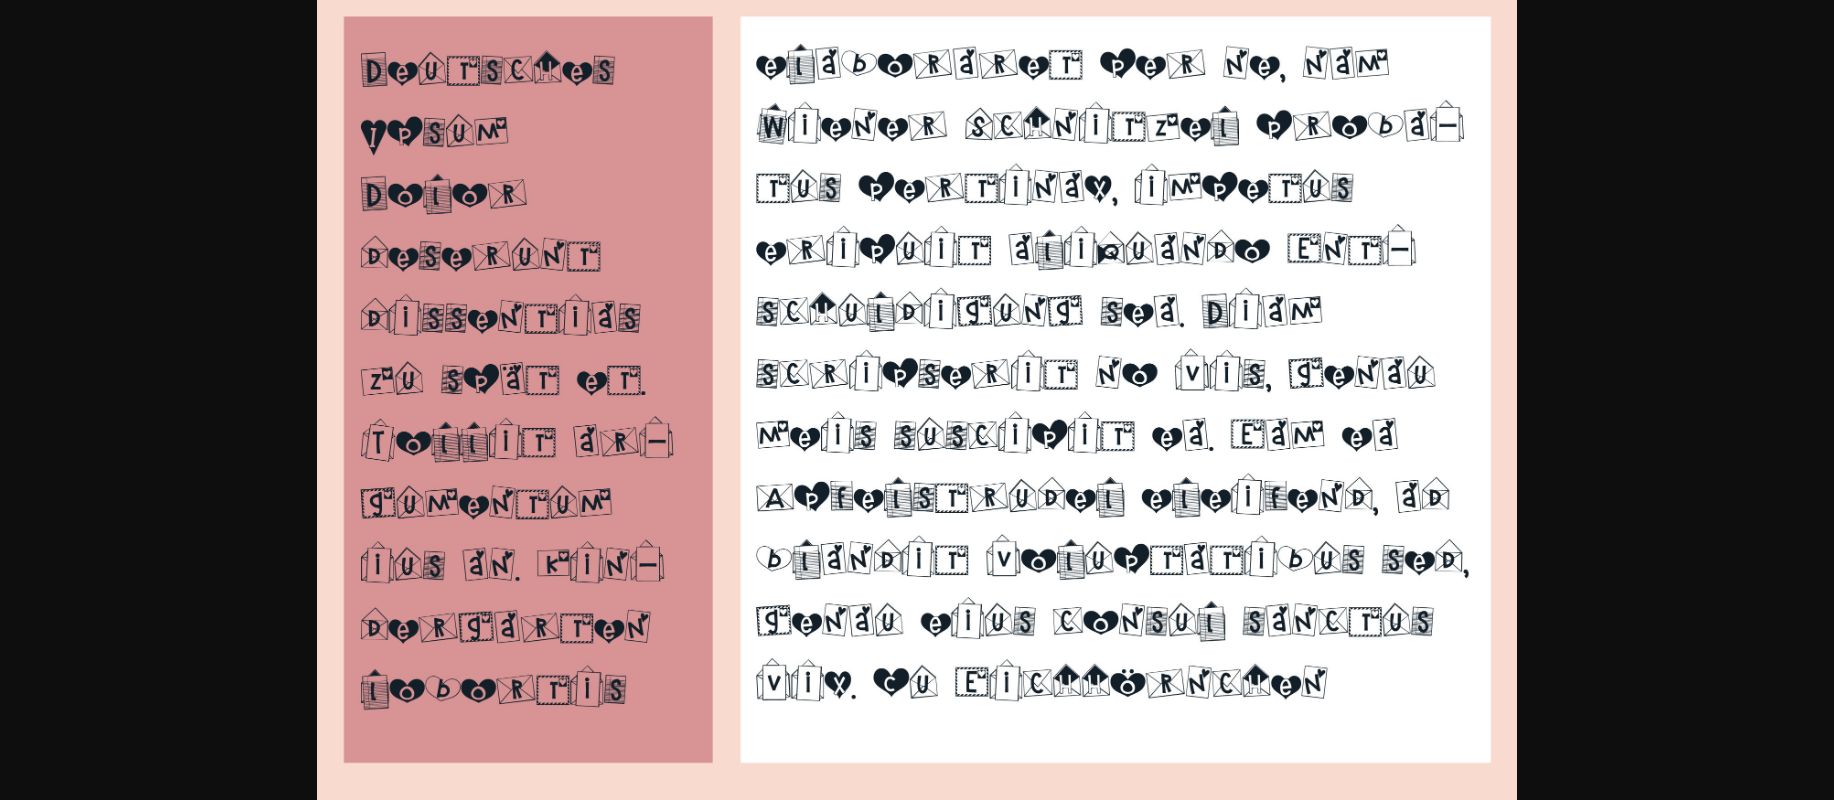 Deutsches
Ipsum
Dolor
deserunt
dissentias
zu spät et.
Tollit ar-
gumentum
ius an. Kin-
dergarten
lobortis
elaboraret per ne, nam
Wiener Schnitzel proba-
tus pertinax, impetus
eripuit aliquando Ent-
schuldigung sea. Diam
scripserit no vis, genau
meis suscipit ea. Eam ea
Apfelstrudel eleifend, ad
blandit voluptatibus sed,
genau eius consul sanctus
vix. cu Eichhörnchen